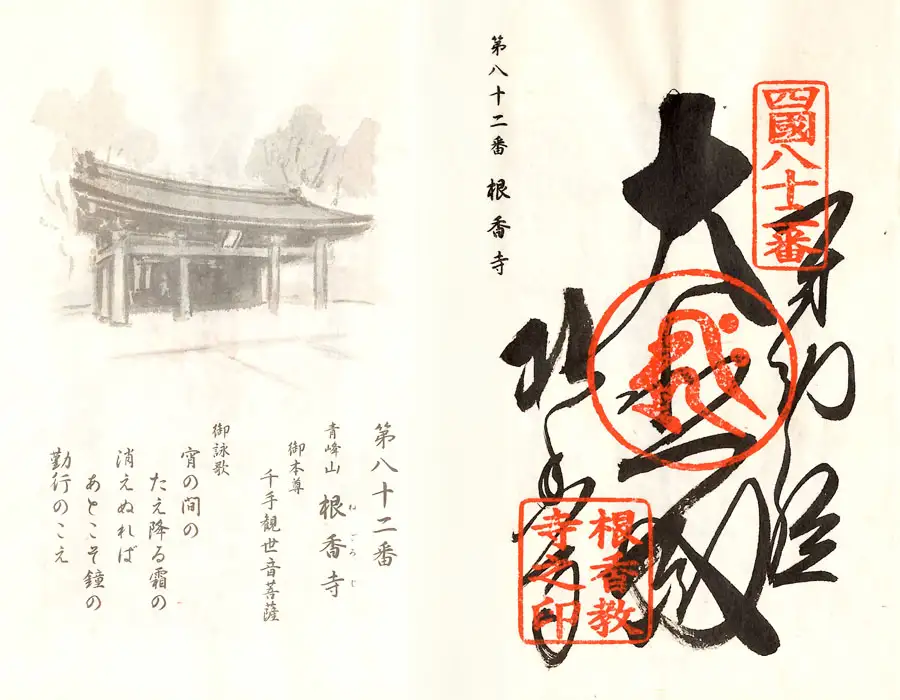 四國八十二番
奉納経
大
根香寺
根香教
寺之印
第八十二番 根香寺
第八十二番
青峰山 根香寺
ねごろじ
御本尊
千手観世音菩薩
御詠歌
宵の間の
たえ降る霜の
消えぬれば
あとこそ鐘の
勤行のこえ